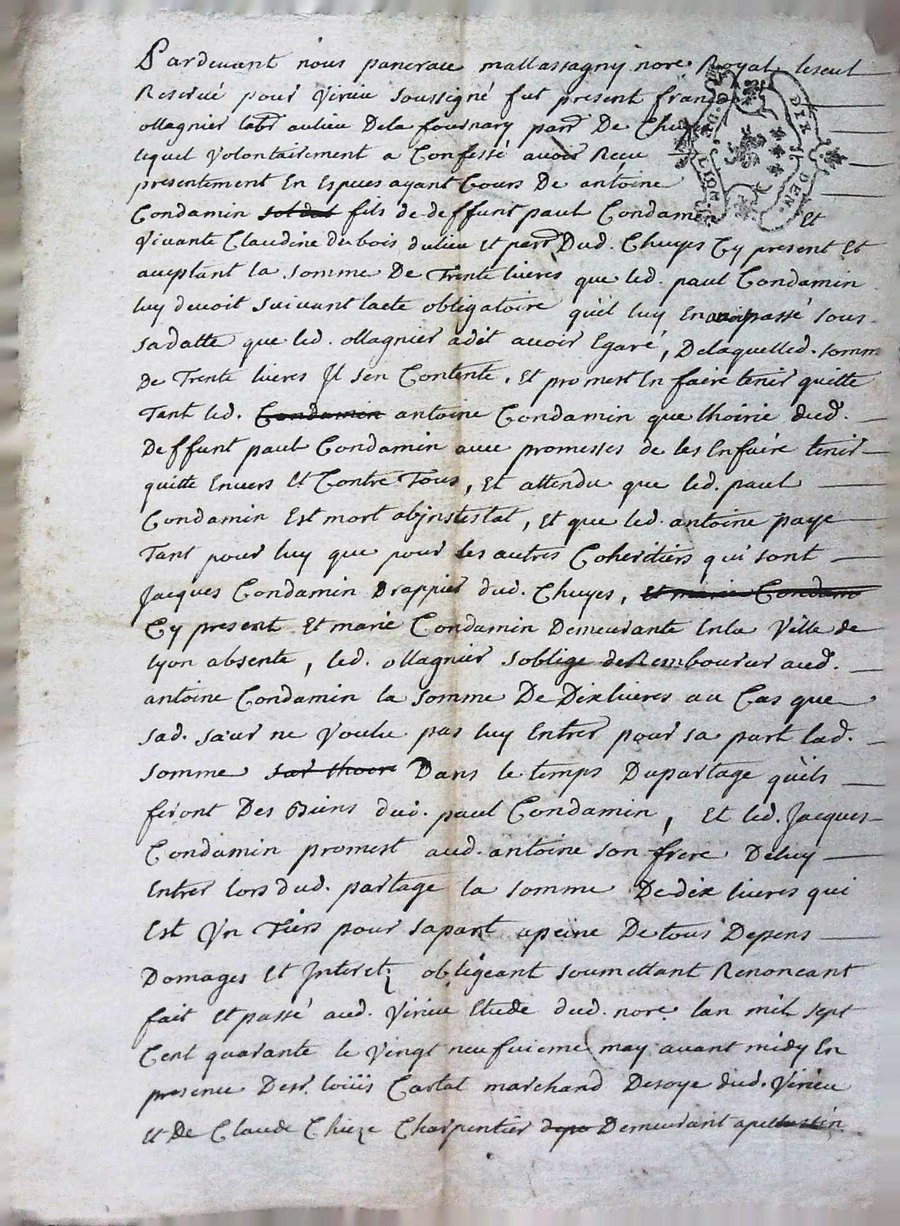 Pardevant nous pancrace mallassagny nore. Royal leseul
Reservé pour Virieu soussigné fut present
ollagnier labr aulieu Dela fournary parr De
lequel volontairement a Confessé avoir Receu
presentement En Especes ayant Cours De antoine
Condamin soldat fils de deffunt paul Et
Vivante Claudine dubois dulieu et parr Dud. Chuyes Cy present Et
aceptant la somme De Trente livres que led. paul Condamin
luy devoit suivant lacte obligatoire quil luy En avoit passé sous
sadatte que led. ollagnier adit avoir Egaré, Delaquelled. somm
De Trente livres Il sen Contente, Et promest En faire tenir quitte
Tant led. Condamin antoine Condamin que lhoirie dud.
Deffunt paul Condamin avec promesses de les Enfaire tenir
quitte Envers Et Contre Tous, Et attendu que led. paul
Condamin Est mort abjntestat, Et que led. antoine paye
Tant pour luy que pour les autres Coheritiers qui sont
Jacques Condamin Drappier dud. Chuyes, Et marie Condam
Cy present Et marie Condamin Demeurante Enla Ville de
lyon absente, led. ollagnier soblige deRembourcer aud.
antoine Condamin la somme De Dix livres au Cas que
sad. sœur ne Voulu pas luy Entrer pour sa part lad.
somme Dans le temps Dupartage quils
feront Des Biens dud. paul Condamin, Et led. Jacques
Condamin promest aud. antoine son frere Deluy
Entrer lors dud. partage la somme De dix livres qui
Est Un Tiers pour sapart apeine De tous Depens
Domages Et Interetz obligeant soumettant Renoncant
fait Et passé aud. Virieu Etude dud. nore. lan mil sept
Cent quarante le Vingt neufvieme may avant midy En
presence Desr. loüis Castal marchand Desoye dud. Virieu
Et De Claude Chieze Charpentier Demeurant
DIX DEN.